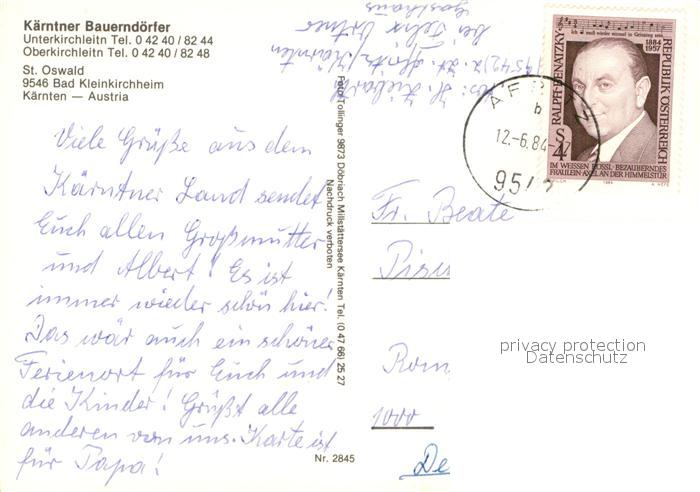 Kärntner Bauerndörfer
Unterkirchleitn Tel. 0 42 40 / 82 44
Oberkirchleitn Tel. 0 42 40 / 82 48
St. Oswald
9546 Bad Kleinkirchheim
Kärnten — Austria
Viele Grüße aus dem
Kärntner Land sendet
Euch allen Großmutter
und Albert! Es ist
immer wieder schön hier!
Das wär auch ein schöner
Ferienort für Euch und
die Kinder! Grüßt alle
anderen von uns. Karte ist
für Papa!
Foto Tollinger 9873 Döbriach Millstättersee Kärnten Tel. (0 47 66) 25 27
Nachdruck verboten
Nr. 2845
bei
Gasthaus
1884
1957
RALPH BENATZKY
REPUBLIK ÖSTERREICH
S 4
IM WEISSEN RÖSSL · BEZAUBERNDES
FRÄULEIN · AXEL AN DER HIMMELSTÜR
AFRITZ
b
12.-6.84-17
954
Fr. Beate
Pisu
Rom
1000
De
privacy protection
Datenschutz